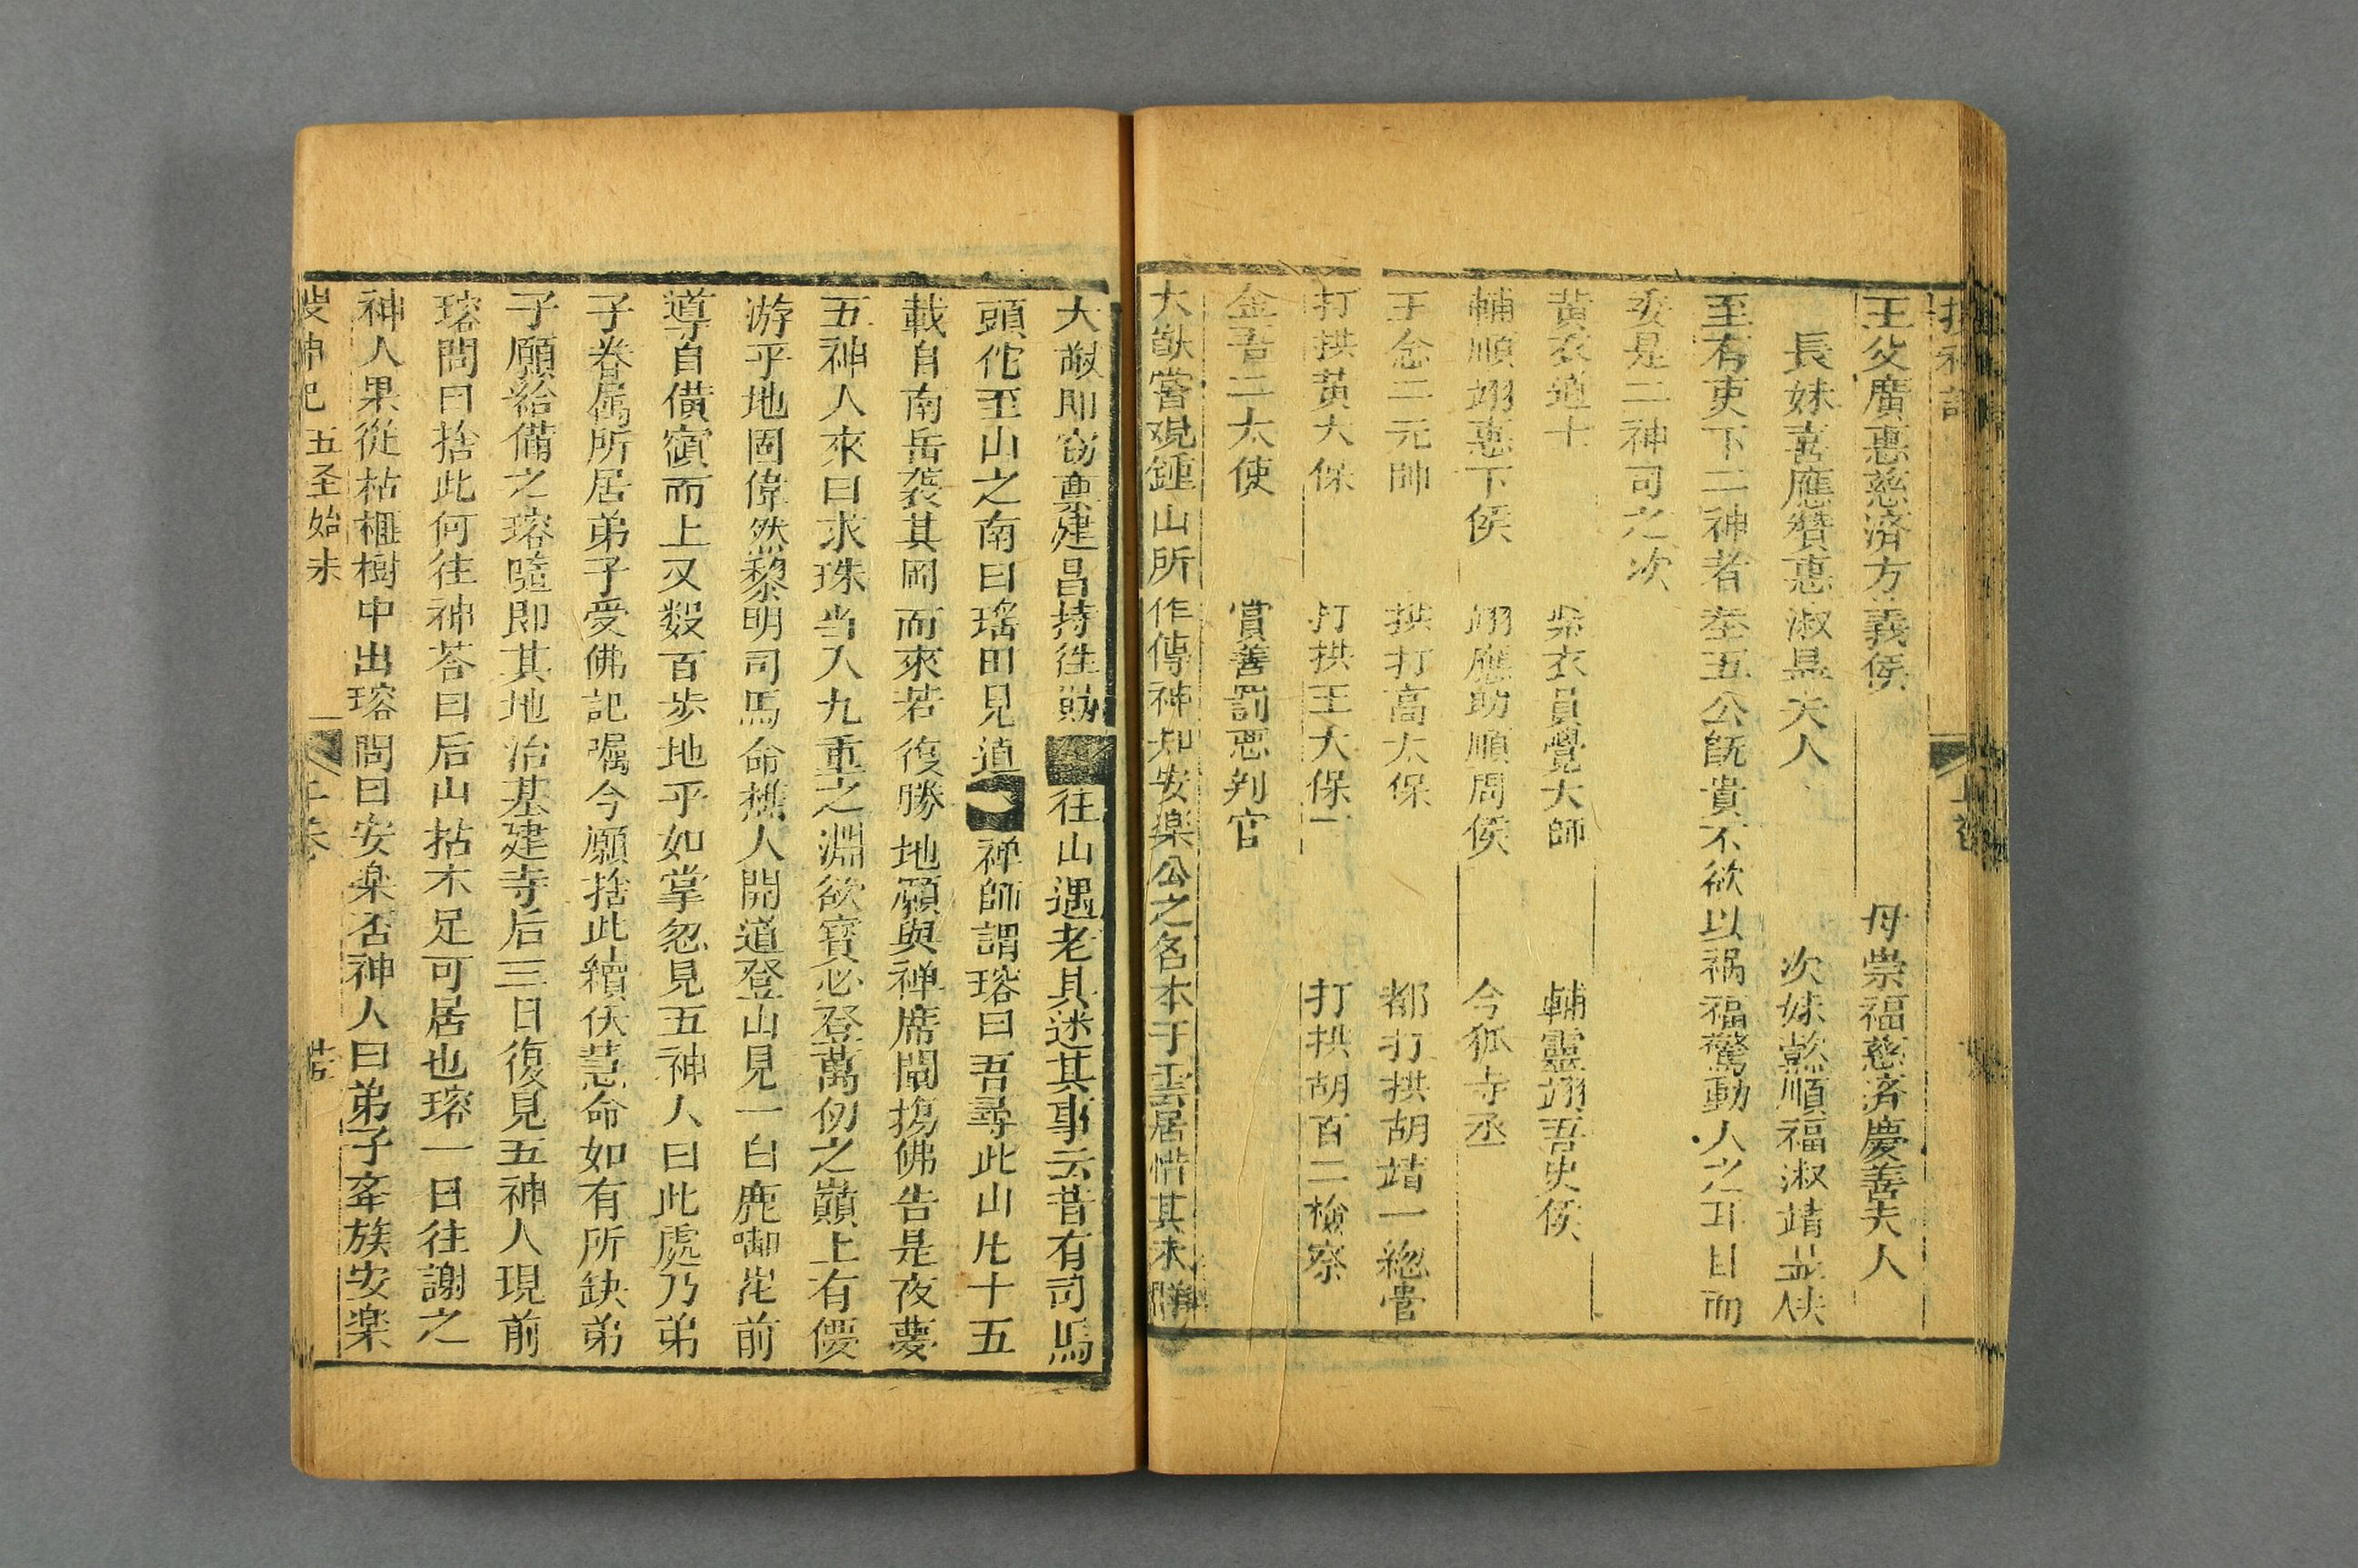 王父廣惠慈済方義侯 母崇福慈済慶善夫人
長妹喜應賛惠淑夫人 次妹懿順福淑靖夫
至有吏下二神者盖五公既貴不欲以禍福驚動人之耳目而
委是二神司之次
黃衣道士 紫衣員覺大師 輔靈翊吾史侯
輔順翊惠下侯 翊應助順周侯 令狐寺丞
王念二元帥 打拱高太保 都打拱胡靖一總管
打拱黃大保 打拱王大保 打拱胡百二檢察
金吾二太使 賞善罰惡判官
大猷嘗覌鍾山所作傳神知安楽公之名本于雲居惜其未
大猷即窃禀建昌持往 往山遇老具迷其事云昔有司馬
頭佗至山之南曰瑤田見道 禅師謂瑢曰吾尋此山凡十五
載自南岳襲其岡而來若復勝地願與禅席闡揚佛告是夜夢
五神人來曰求珠当入九重之淵欲寳必登萬仞之巔上有
游乎地固偉然黎明司馬命樵人開道登山見一白鹿啣花前
導自僙而上又数百歩地乎如掌忽見五神人曰此處乃弟
子眷属所居弟子受佛記嘱今願捨此續伕慧命如有所缺弟
子願給備之瑢随即其地治基建寺后三日復見五神人現前
瑢問曰捨此何往神荅曰后山拈木足可居也瑢一日往謝之
神人果從枯榧樹中出瑢問曰安楽否神人曰弟子夆族安楽
搜神記 五圣始末 二卷